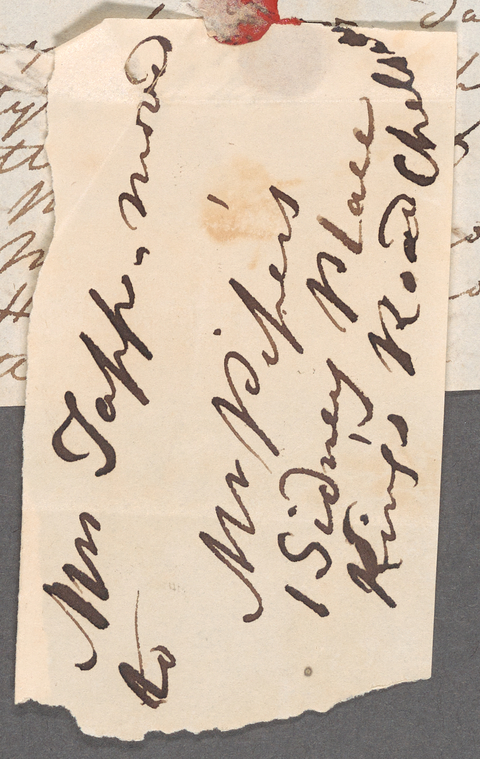 Mrs Tapp, moved
to
Mr Pipers
1 Sidney Place
Kings Road Chelsea